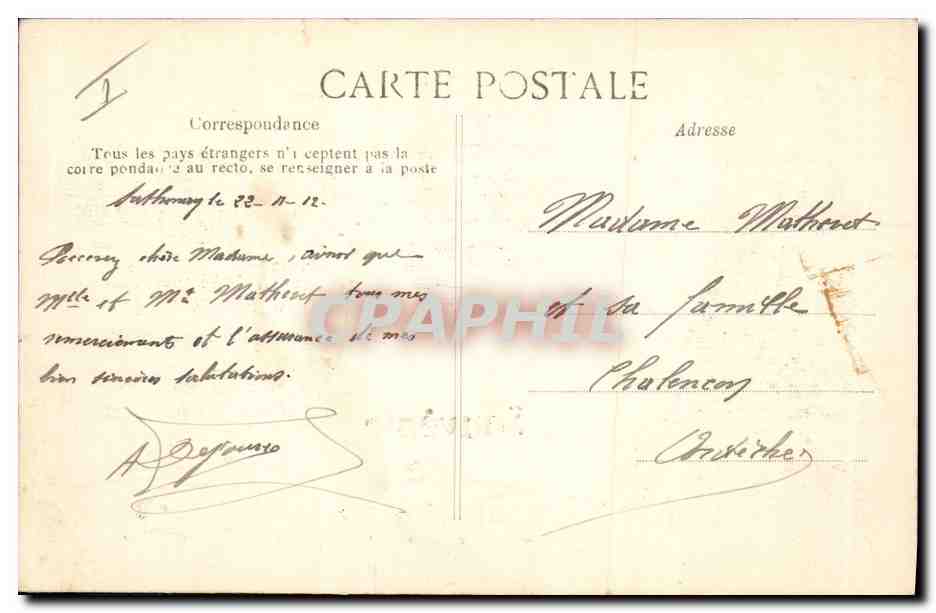 1
CARTE POSTALE
Correspondance
Tous les pays étrangers n'a ceptent pas la
corre pondance au recto, se renseigner à la poste
Sathonay le 22-11-12.
Recevez chère Madame, ainsi que
Mlle et Mr Mathout tous mes
remerciement et l'assurance de mes
bien sincères salutations.
A
Adresse
Madame Mathout
et sa famille
Chalencon
Ardèche
CPAPHIL